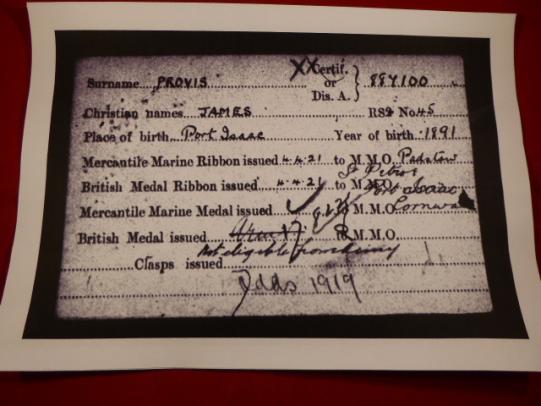 Surname PROVIS XX Certif. or Dis. A. } 887100
Christian names JAMES RS2 No 45
Place of birth Port Isaac Year of birth 1891
Mercantile Marine Ribbon issued 4.4.21 to M.M.O. Padstow
British Medal Ribbon issued 4.4.21 to M.M.O. St Petros
Mercantile Marine Medal issued to M.M.O. Port Isaac Cornwa
British Medal issued M.M.O.
Not eligible from
Clasps issued
1919